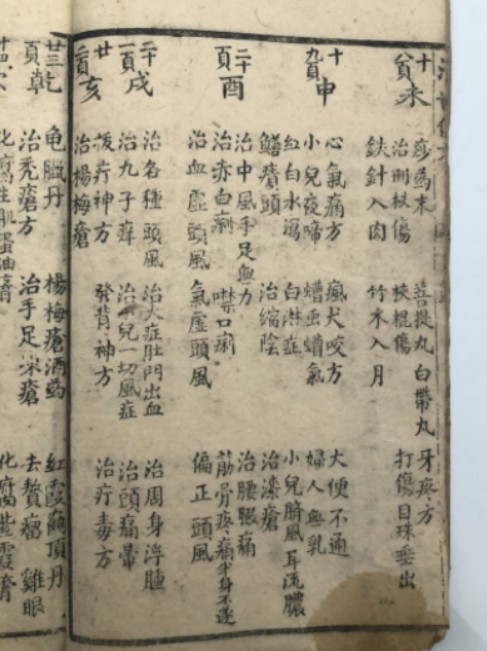 未
十頁
痧葯末 菩提丸 白帶丸 牙疼方
治刑杖傷 挾棍傷 打傷目珠垂出
鈇針入肉 竹木入月
申
十九頁
心氣痛方 瘋犬咬方 大便不通
小兒夜啼 螬虫螬氣 婦人無乳
紅白水瀉 白症 小兒臍風 耳流膿
頭 治縮陰 治漆瘡
酉
二十頁
治中風手足無力 治腰痛
治赤白痢 噤口痢 筋骨疼痛半身不遂
治血虛頭風 氣虛頭風 偏正頭風
戌
二十一頁
治各種頭風 治大症肚門出血 治周身浮腫
治九子癢 治小兒一切風症 治頭痛暈
亥
廿二頁
拔疔神方 發背神方 治疔毒方
治楊梅瘡
乾
廿三頁
龟臌丹 楊梅瘡酒葯 紅霞頂丹
治禿瘡方 治手足氷瘡 去贅瘤 雞眼
化腐生肌蛋油膏 化腐紫霞膏